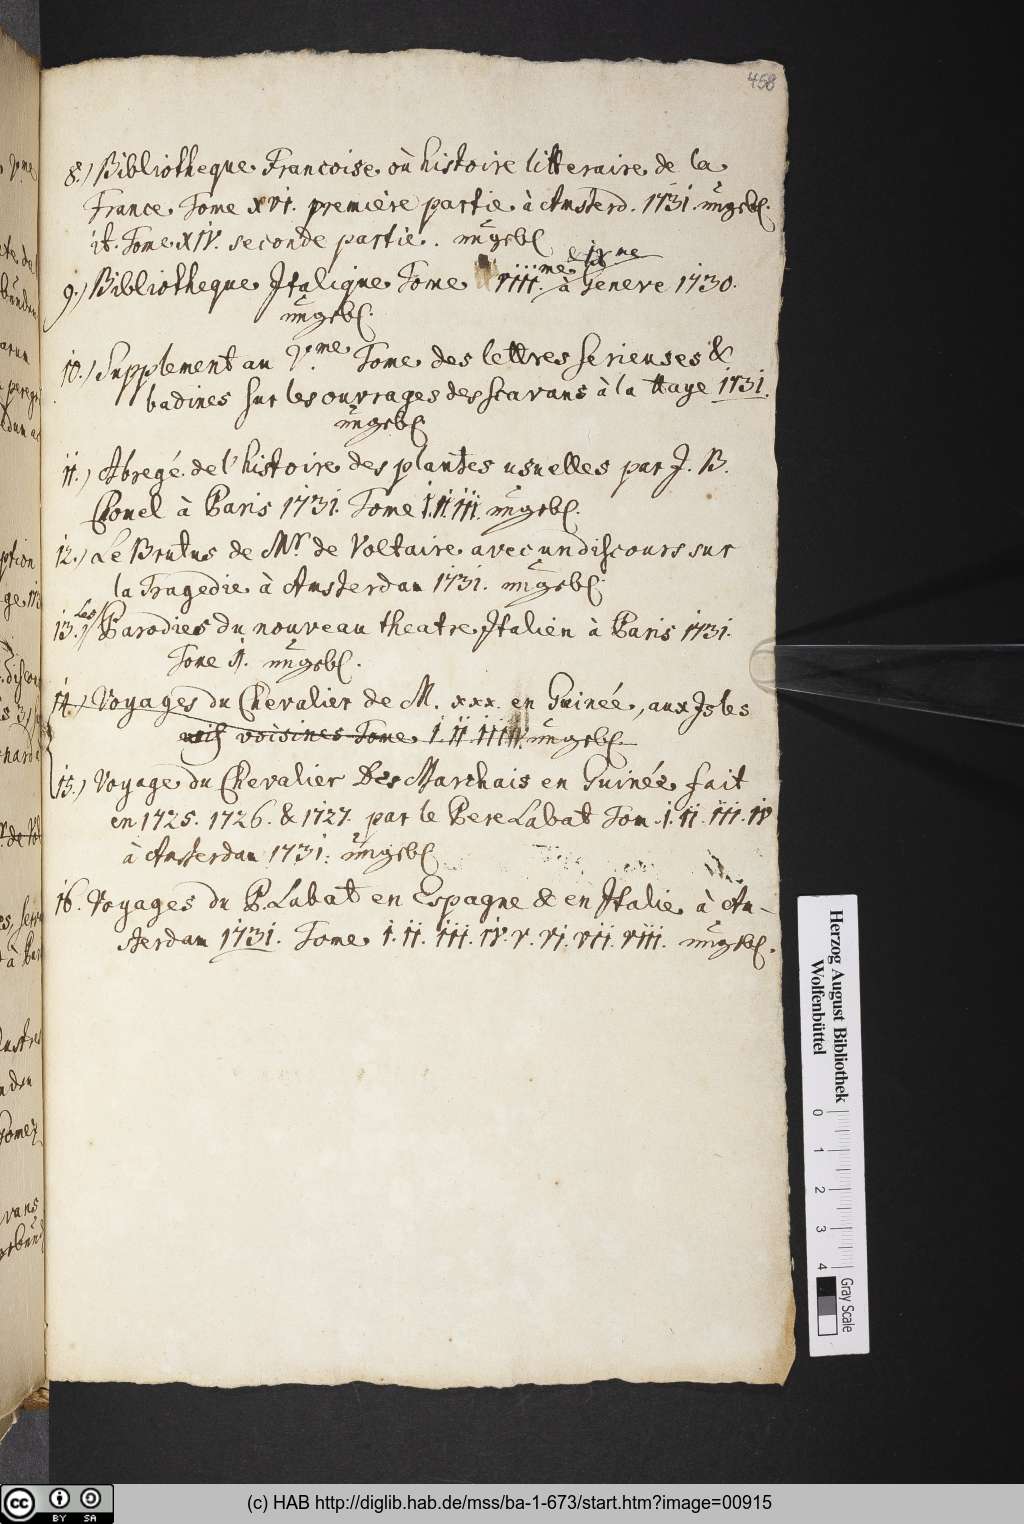 458
8.) Bibliotheque Francoise où histoire litteraire de la
France Tome XVI. première partie à Amsterd. 1731. ungeb.
it. Tome XIV. seconde partie. ungeb.
& IX me
9.) Bibliotheque Italique Tome VIII. me à Geneve 1730.
ungeb.
10.) Supplement au V. me Tome des lettres serieuses &
badines sur les ouvrages des scavans à la Haye 1731.
ungeb.
11.) Abregé de l'histoire des plantes usuelles par J. B.
Chomel à Paris 1731. Tome I. II. III. ungeb.
12.) Le Brutus de Mr. de Voltaire avec un discours sur
la Tragedie à Amsterdam 1731. ungeb.
13.) Les Parodies du nouveau theatre Italien à Paris 1731.
Tome ungeb.
14.) Voyages du Chevalier de M. xxx. en Guinée, aux Isles
voisines Tome I. II. III ungeb.
15.) Voyage du Chevalier Des Marchais en Guinée fait
en 1725. 1726. & 1727. par le Pere Labat Tom. I. II. III. IV
à Amsterdam 1731. ungeb.
16. Voyages du P. Labat en Espagne & en Italie à Am-
sterdam 1731. Tome I. II. III. IV. V. VI. VII. VIII. ungeb.
Herzog August Bibliothek
Wolfenbüttel
0 1 2 3 4
Gray Scale
(c) HAB http://diglib.hab.de/mss/ba-1-673/start.htm?image=00915
cc BY SA